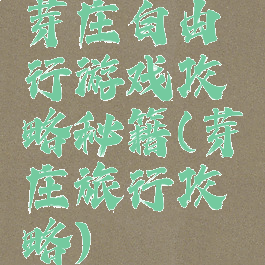 芽庄自由
行游戏攻
略秘籍(芽
庄旅行攻
略)